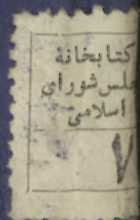 کتابخانة
مجلس شورای
اسلامی
۷